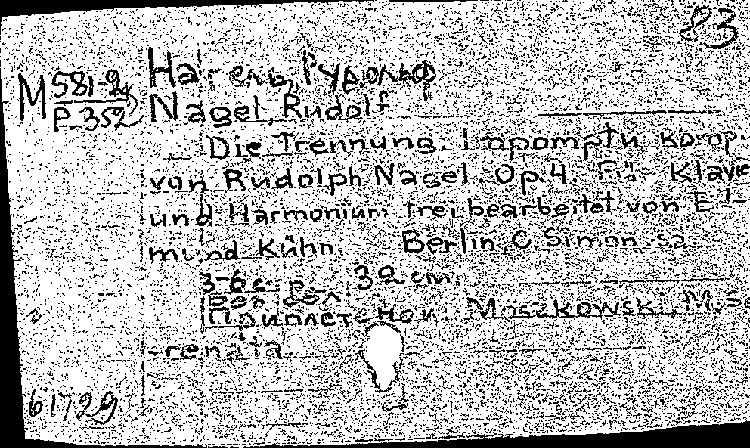 83
М 581-2
Р-352
Нагель, Рудольф
Nagel, Rudolf
Die Trennung. Impomptu komp.
von Rudolph Nagel. Op.4. Für Klavie
und Harmonium frei bearbeitet von Ed-
mund Kühn. Berlin, C. Simon s.a.
3-6 с. р. 32 cm.
Без обл.
Приплет. к н.: Moszkowski, M. Se
-renata
61729